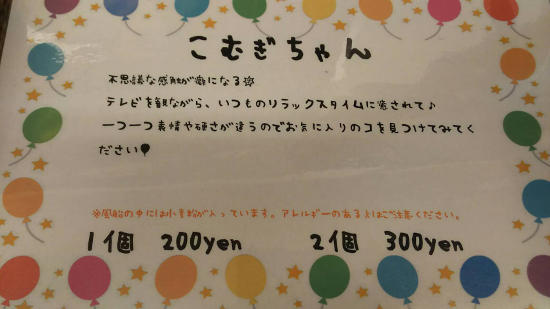 こむぎちゃん
不思議な感触が癖になる☆
テレビを観ながら、いつものリラックスタイムに癒されて♪
一つ一つ表情や硬さが違うのでお気に入りのコを見つけてみてく
ださい🎈
※風船の中には小麦粉が入っています。アレルギーのある人はご注意ください。
1個 200yen 2個 300yen